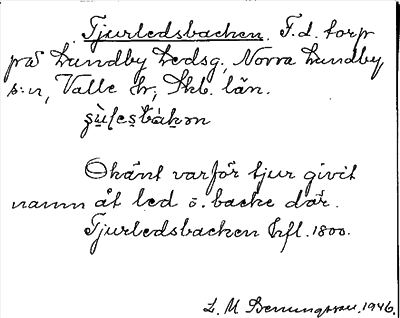 Tjurledsbacken. F.d. torp
på Lundby Ledsg., Norra Lundby
s:n, Valle hr, Skb. län.
Okänt varför tjur givit
namn åt led o. backe där.
Tjurledsbacken hfl. 1800.
L. M. Bennungsson. 1946.